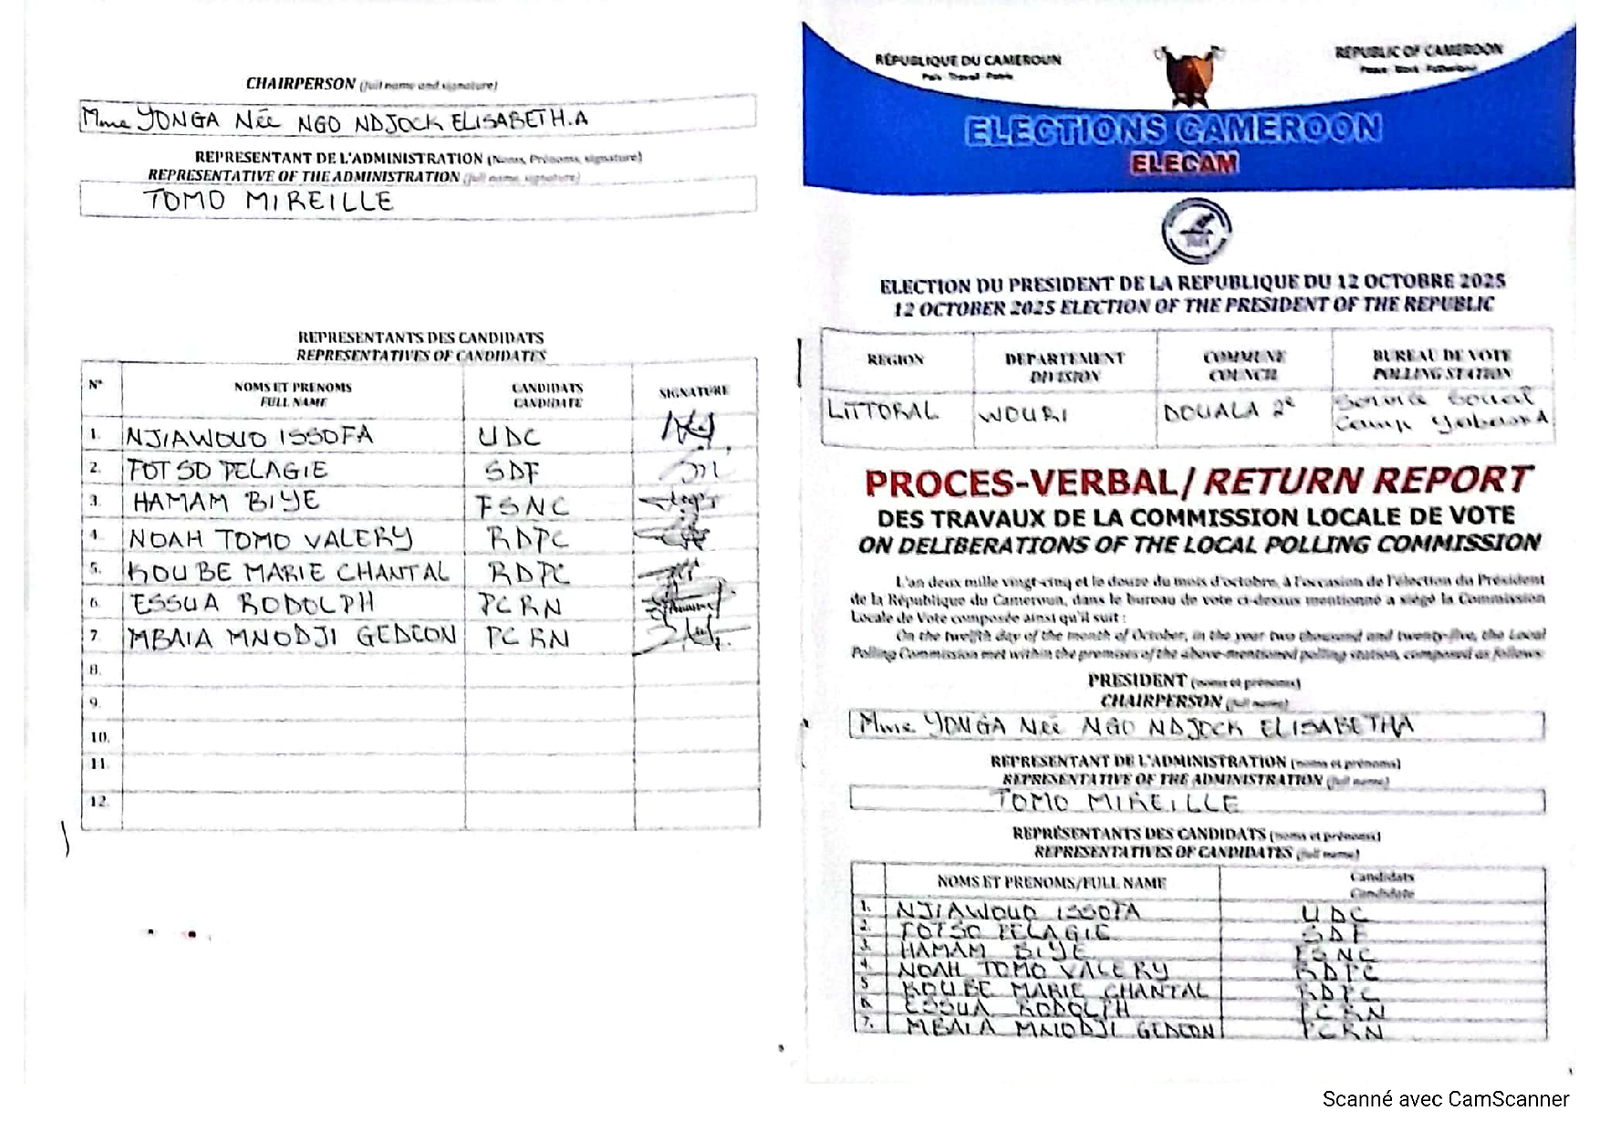 CHAIRPERSON (full name and signature)
Mme YONGA Née NGO NDJOCK ELISABETH.A
REPRESENTANT DE L'ADMINISTRATION (Noms, Prénoms, signature)
REPRESENTATIVE OF THE ADMINISTRATION (full name, signature)
TOMO MIREILLE
REPRESENTANTS DES CANDIDATS
REPRESENTATIVES OF CANDIDATES
N° NOMS ET PRENOMS FULL NAME CANDIDATS CANDIDATE SIGNATURE
1. NJIAWOUO ISSOFA UDC
2. FOTSO PELAGIE SDF
3. HAMAM BIYE FSNC
4. NOAH TOMO VALERY RDPC
5. KOUBE MARIE CHANTAL RDPC
6. ESSUA RODOLPH PCRN
7. MBAIA MNODJI GEDEON PCRN
8.
9.
10.
11.
12.
RÉPUBLIQUE DU CAMEROUN
Paix - Travail - Patrie
REPUBLIC OF CAMEROON
Peace - Work - Fatherland
ELECTIONS CAMEROON
ELECAM
ELECTION DU PRESIDENT DE LA REPUBLIQUE DU 12 OCTOBRE 2025
12 OCTOBER 2025 ELECTION OF THE PRESIDENT OF THE REPUBLIC
REGION DEPARTEMENT DIVISION COMMUNE COUNCIL BUREAU DE VOTE POLLING STATION
LITTORAL WOURI DOUALA 2e Social Camp Yabassi A
PROCES-VERBAL/ RETURN REPORT
DES TRAVAUX DE LA COMMISSION LOCALE DE VOTE
ON DELIBERATIONS OF THE LOCAL POLLING COMMISSION
L'an deux mille vingt-cinq et le douze du mois d'octobre, à l'occasion de l'élection du Président
de la République du Cameroun, dans le bureau de vote ci-dessus mentionné a siégé la Commission
Locale de Vote composée ainsi qu'il suit :
On the twelfth day of the month of October, in the year two thousand and twenty-five, the Local
Polling Commission met within the premises of the above-mentioned polling station, composed as follows:
PRESIDENT (noms et prénoms)
CHAIRPERSON (full name)
Mme YONGA Née NGO NDJOCK ELISABETH A
REPRESENTANT DE L'ADMINISTRATION (noms et prénoms)
REPRESENTATIVE OF THE ADMINISTRATION (full name)
TOMO MIREILLE
REPRÉSENTANTS DES CANDIDATS (noms et prénoms)
REPRESENTATIVES OF CANDIDATES (full name)
NOMS ET PRENOMS/FULL NAME Candidats Candidate
1. NJIAWOUO ISSOFA UDC
2. FOTSO PELAGIE SDF
3. HAMAM BIYE FSNC
4. NOAH TOMO VALERY RDPC
5 KOUBE MARIE CHANTAL RDPC
6. ESSUA RODOLPH PCRN
7. MBAIA MNODJI GEDEON PCRN
Scanné avec CamScanner